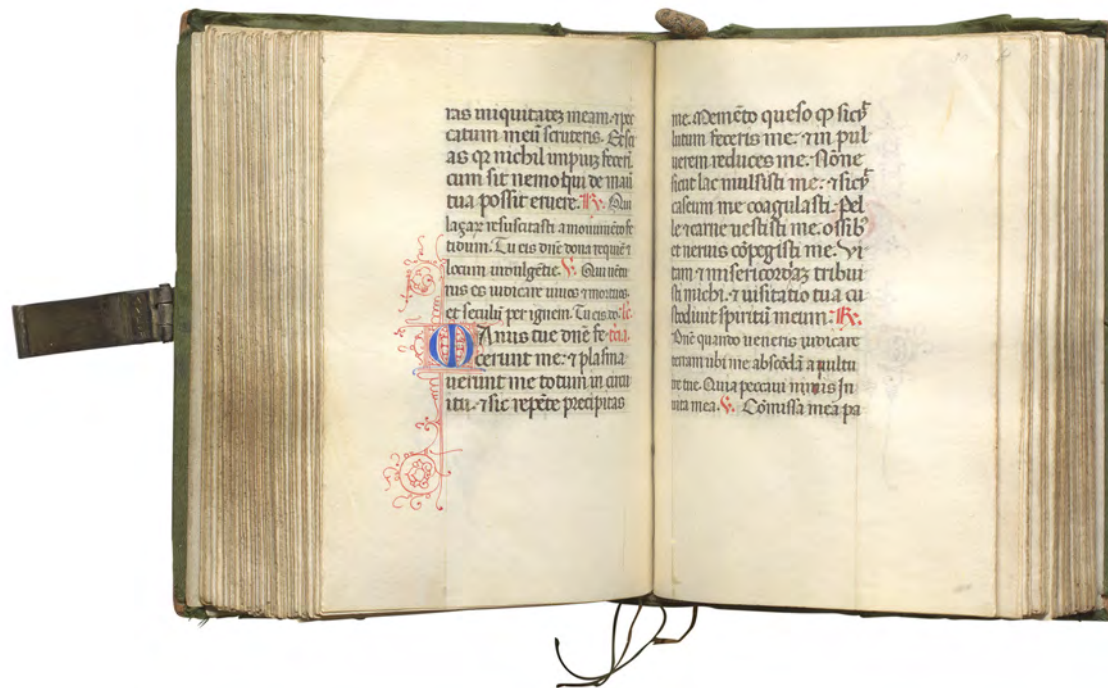 ras iniquitatez meam. ⁊ pec
catum meū scruteris. Et sci
as qꝛ nichil impiuz fecerī.
cum sit nemo qui de manū
tua possit eruere. ℟. Qui
lazarꝫ resuscitasti a monumēto fe
tidum. Tu eis dn̄e dona requiē ⁊
locum indulgētie. ℣. Qui uēntu
rus es iudicare uiuos ⁊ mortuos.
et seculū per ignem. Tu eis do. łc̄.
MAnus tue dn̄e fe- tcia.
cerunt me: ⁊ plasma
uerunt me totum in circu
itu. ⁊ sic repēte precipitas
me. Memēto queso ꝙ sicꝰ
lutum feceris me. ⁊ in pul
uerem reduces me. Nōne
sicut lac mulsisti me: ⁊ sicꝰ
caseum me coagulasti. Pel
le ⁊ carne uestisti me. ossibꝰ
et neruis cōpegisti me. Vi
tam ⁊ misericordiaz tribui
sti michi. ⁊ uisitatio tua cu
stodiuit spiritū meum: ℟.
Dn̄e quando ueneris iudicare
terram ubi me abscōdā a uultu
ire tue. Quia peccaui nimis ĩn
uita mea. ℣. Cōmissa mea pa